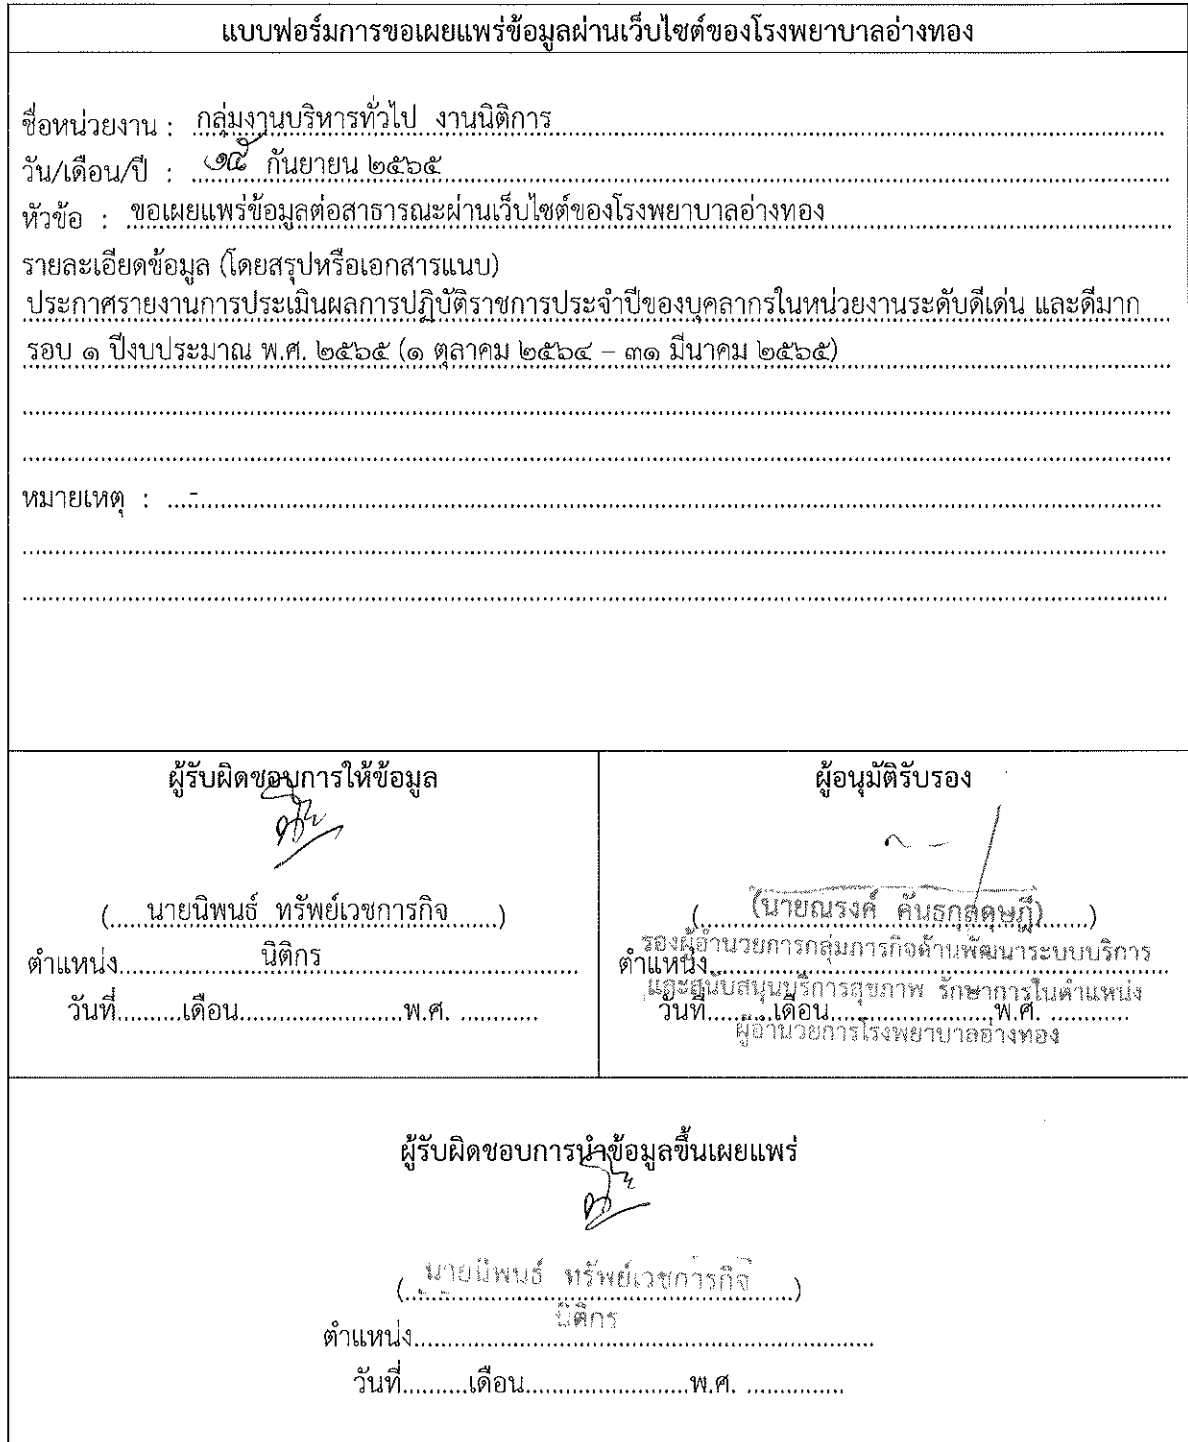 แบบฟอร์มการขอเผยแพร่ข้อมูลผ่านเว็บไซต์ของโรงพยาบาลอ่างทอง
ชื่อหน่วยงาน : กลุ่มงานบริหารทั่วไป งานนิติการ
วัน/เดือน/ปี : ๑๕ กันยายน ๒๕๖๕
หัวข้อ : ขอเผยแพร่ข้อมูลต่อสาธารณะผ่านเว็บไซต์ของโรงพยาบาลอ่างทอง
รายละเอียดข้อมูล (โดยสรุปหรือเอกสารแนบ)
ประกาศรายงานการประเมินผลการปฏิบัติราชการประจำปีของบุคลากรในหน่วยงานระดับดีเด่น และดีมาก
รอบ ๑ ปีงบประมาณ พ.ศ. ๒๕๖๕ (๑ ตุลาคม ๒๕๖๔ – ๓๑ มีนาคม ๒๕๖๕)
หมายเหตุ : ...-...
ผู้รับผิดชอบการให้ข้อมูล
(.....นายนิพนธ์ ทรัพย์เวชการกิจ......)
ตำแหน่ง..........นิติกร..........
วันที่.........เดือน.......................พ.ศ. ............
ผู้อนุมัติรับรอง
(......(นายณรงค์ คันธกุลดุษฎี)......)
ตำแหน่ง รองผู้อำนวยการกลุ่มภารกิจด้านพัฒนาระบบบริการ
และสนับสนุนบริการสุขภาพ รักษาการในตำแหน่ง
วันที่.........เดือน.......................พ.ศ. ............
ผู้อำนวยการโรงพยาบาลอ่างทอง
ผู้รับผิดชอบการนำข้อมูลขึ้นเผยแพร่
(...นายนิพนธ์ ทรัพย์เวชการกิจ......)
ตำแหน่ง..........นิติกร..........
วันที่..........เดือน........................พ.ศ. ...............